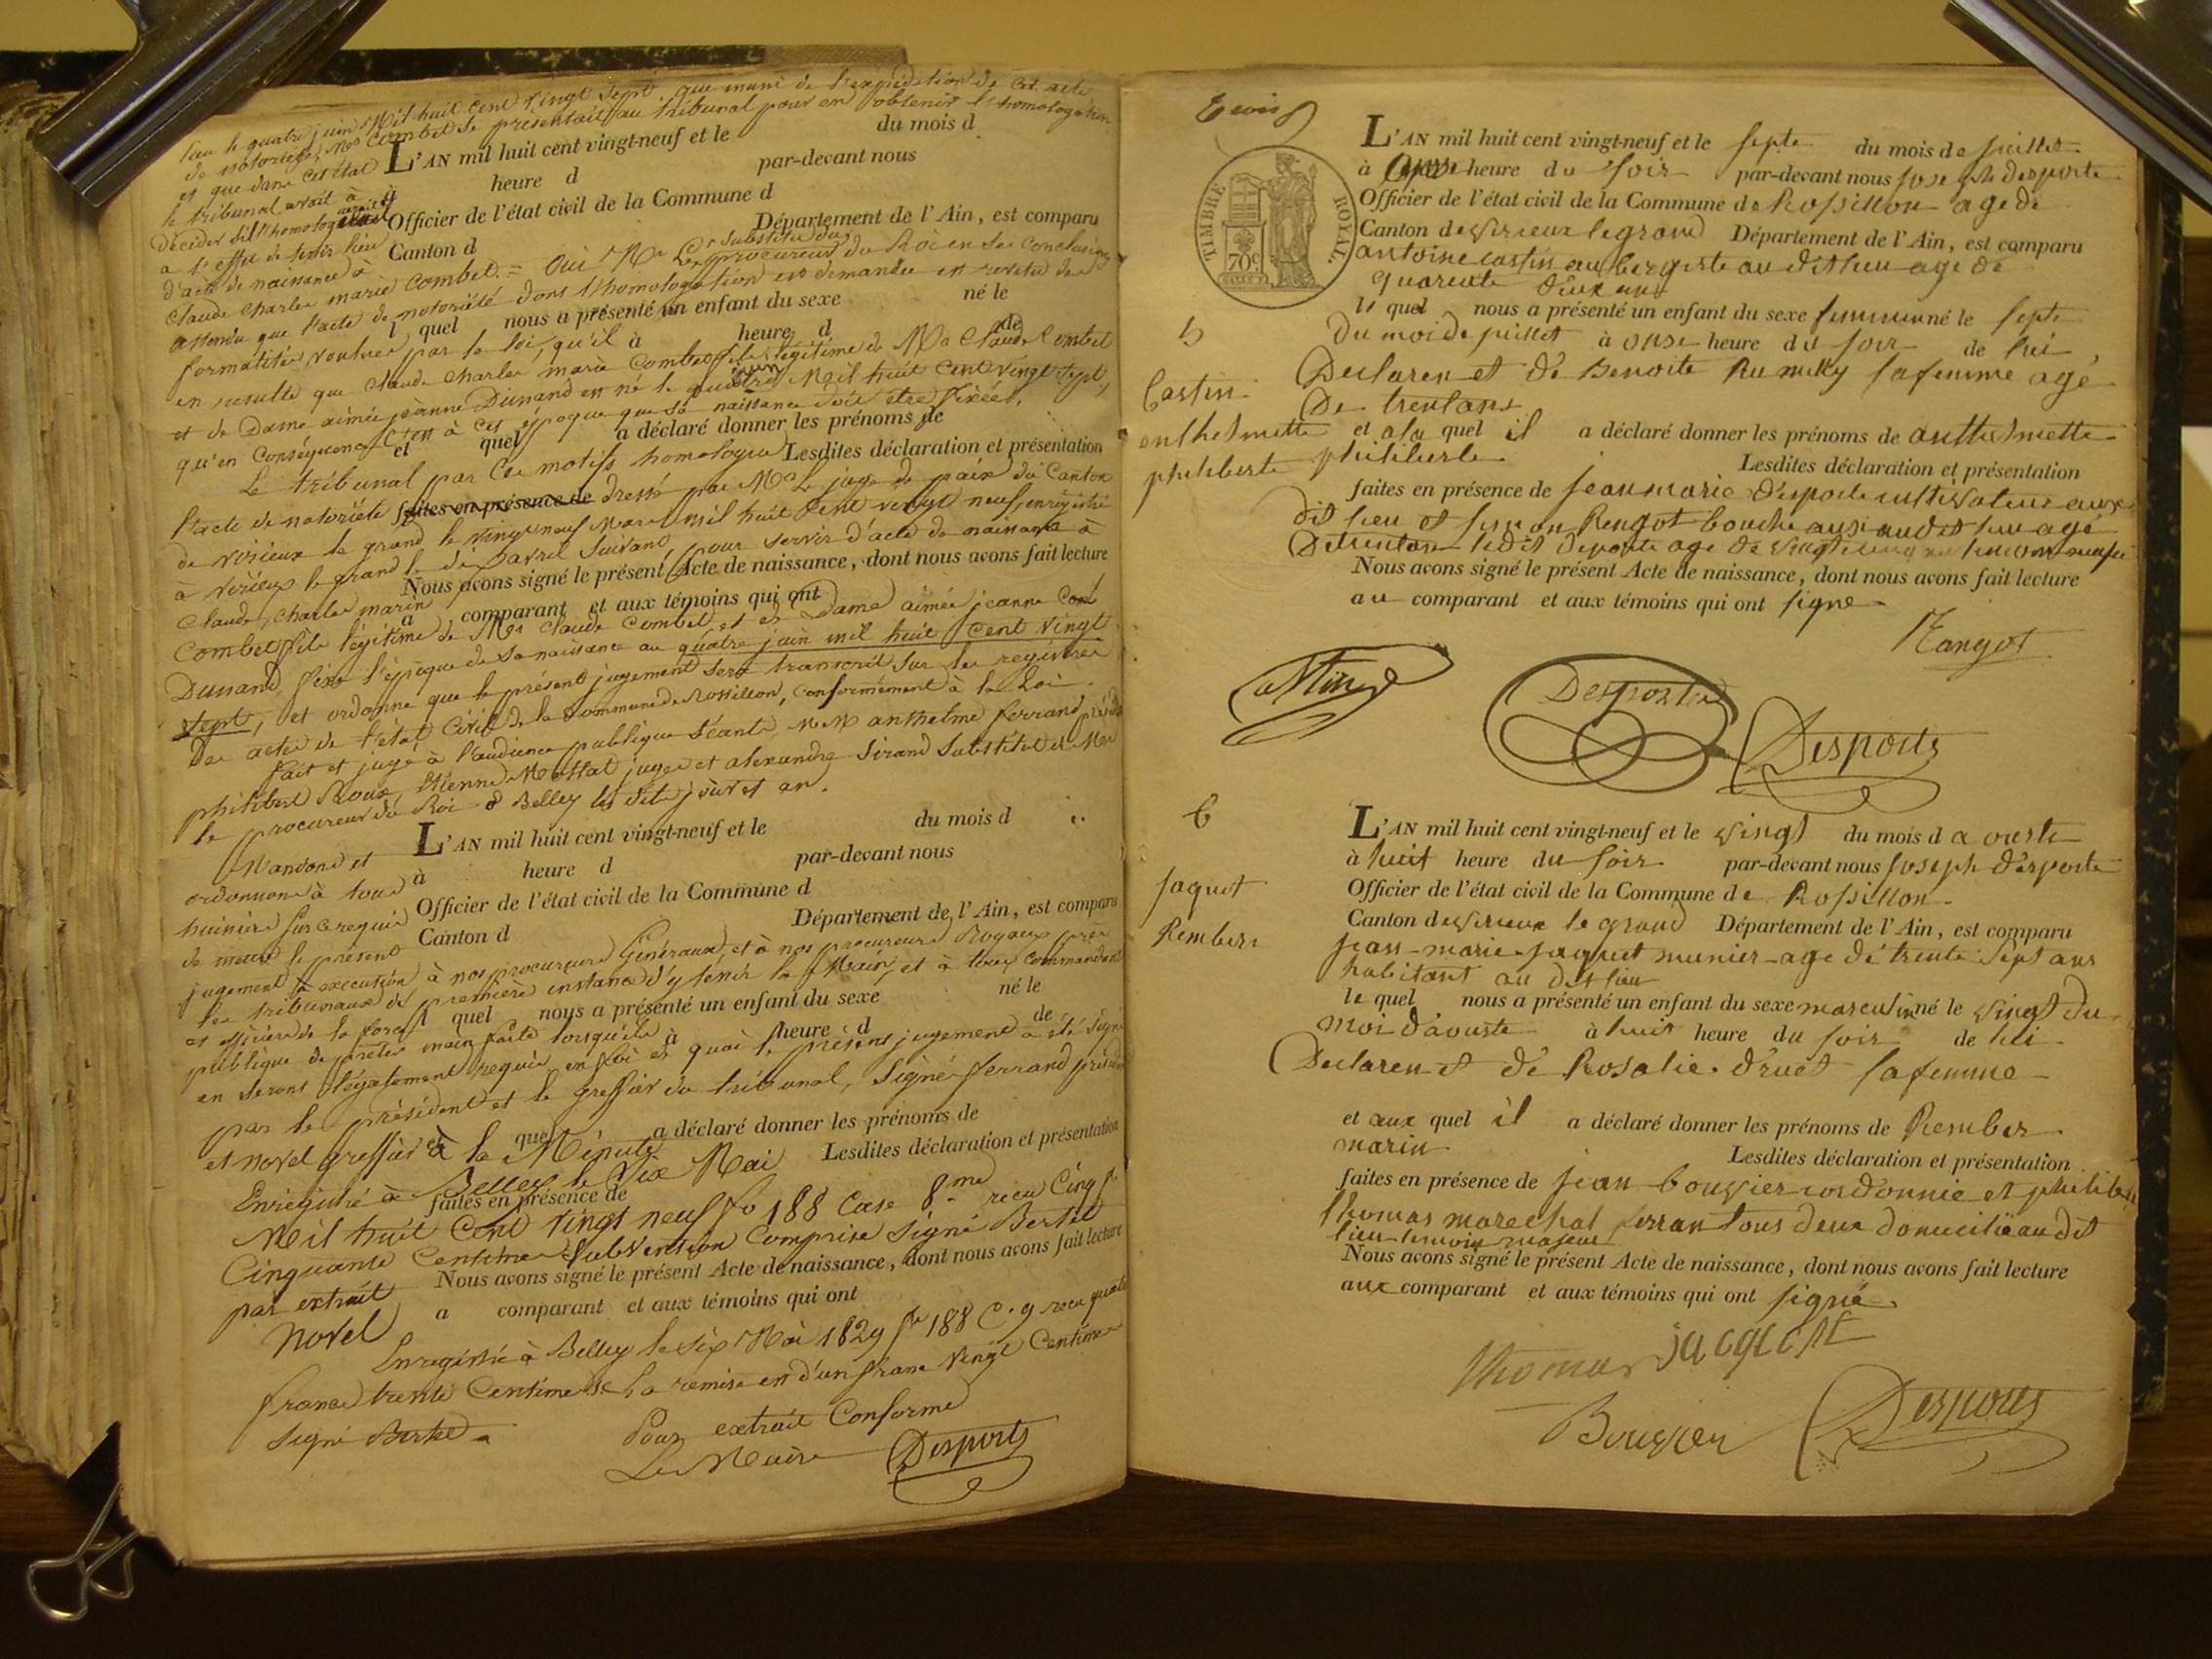 lieu le quatre juin Mil huit cent vingt sept, que muni de l'expédition de cet acte
de notoriété, Mr Combet se présentait au tribunal pour en obtenir l'homologation
et que dans cet état
L'AN mil huit cent vingt-neuf et le du mois d
à heure d par-devant nous
le tribunal avait à
décider s'il l'homologuerait
Officier de l'état civil de la Commune d
a l'effet de tenir lieu
Canton d Département de l'Ain, est comparu
d'acte de naissance à
Claude Charles marie Combet. = Oui Mr Le Substitu du procureur du Roi en ses conclusions
attendu que l'acte de notoriété dont l'homologation est demandée est revêtu des
l quel nous a présenté un enfant du sexe né le
formalités voulues par la loi, qu'il
à heure d de
en resulte que Claude Charles marie Combet fils légitime de Mr Claude Combet
et de Dame aimée jeanne Dunand est né le quatre juin Mil huit Cent vingt sept,
qu'en Conséquence C'est à cet époque que sa naissance doit etre fixée.
et quel a déclaré donner les prénoms de
Lesdites déclaration et présentation
Le tribunal par Ces motifs homologue
l'acte de notoriété faites en présence de dressé par Mr Le juge de paix du Canton
de virieux le grand le vingt neuf Mars mil huit Cent vingt neuf, enregistré
à virieux le grand le dix avril suivant, pour servir d'acte de naissance à
Nous avons signé le présent Acte de naissance, dont nous avons fait lecture
Claude, Charles marin
a comparant et aux témoins qui ont
Combet fils légitime de Mr Claude Combet, et de Dame aimée jeanne
Dunand, fixe l'époque de sa naissance au quatre juin mil huit Cent vingt
sept, et ordonne que le présent jugement sera transcrit sur les registres
des actes de l'état Civil de la Commune de Rossillon, conformément à la Loi.
fait et jugé à l'audience publique séants, MM anthelme ferrand
philibert Roux, Etienne juges et alexandre Sirand Substitut de Mr
le procureur du Roi à Belley les dits jour et an.
L'AN mil huit cent vingt-neuf et le du mois d
Mandons et
à heure d par-devant nous
ordonnons à tous
Officier de l'état civil de la Commune d
huissiers sur ce requis
Canton d Département de l'Ain, est comparu
de mettre le présent
jugement à execution à nos procureurs Généraux, et à nos procureurs Royaux près
les tribunaux de première instance d'y tenir la Main, et à tous Commandants
l quel nous a présenté un enfant du sexe né le
et officiers de la force
à heure d de
publique de prêter main forte lorsqu'ils
en seront légalement requis en foi de quoi le présent jugement a été signé
par le président et le greffier du tribunal, Signé ferrand
et quel a déclaré donner les prénoms de
et novel greffier à la Minute.
Lesdites déclaration et présentation
Enregistré à Belley le Six Mai
faites en présence de
Mil huit Cent vingt neuf fo 188 Case 8.me reçu Cinq f
Cinquante Centimes Subvention Comprise Signé Bertet
Nous avons signé le présent Acte de naissance, dont nous avons fait lecture
par extrait
a comparant et aux témoins qui ont
Novel
Enregistré à Belley le six Mai 1829 fo 188 C. 9 reçu quatre
francs trente Centimes La remise est d'un franc Vingt Centimes
Signé Bertet
Pour extrait Conforme
Le Maire Desports
trois
L'AN mil huit cent vingt-neuf et le septe du mois de juillet
à onse heure du soir par-devant nous joseph desporte
TIMBRE ROYAL.
70c
Officier de l'état civil de la Commune de Rossillon age de
Canton de virieux le grand Département de l'Ain, est comparu
antoine castin aubergiste au dit lieu age de
quarente deux ans
le quel nous a présenté un enfant du sexe femminin né le septe
5
du moi de juillet à onse heure du soir de lui,
Castin
Declaren et de Benoite Rumilly sa femme age
De trentans
enthelmette
et ala quel il a déclaré donner les prénoms de anthelmette
philiberte
philiberte
Lesdites déclaration et présentation
faites en présence de jean marie desporte cultivateur
dit lieu et Rengot bouche audit lieu age
De trentans ledit deporte age de
Nous avons signé le présent Acte de naissance, dont nous avons fait lecture
au comparant et aux témoins qui ont signe
Rangot
Desportes
Desports
6
L'AN mil huit cent vingt-neuf et le vingt du mois d a ouste
à huit heure du soir par-devant nous joseph desporte
jaquet
Officier de l'état civil de la Commune de Rossillon
Rember
Canton de virieux le grand Département de l'Ain, est comparu
jean-marie jaquet munier age de trente sept ans
habitant au dit lieu
le quel nous a présenté un enfant du sexe masculin né le vingt du
moi d'aouste à huit heure du soir de lui
Declaren et de Rosalie druet sa femme
et aux quel il a déclaré donner les prénoms de Rember
marin
Lesdites déclaration et présentation
faites en présence de jean bouvier cordonnie et
thomas marechal ferran tous deux domicilié au dit
lieu temoin majeur
Nous avons signé le présent Acte de naissance, dont nous avons fait lecture
aux comparant et aux témoins qui ont signé
thomas jacquet
Bouvier Desports